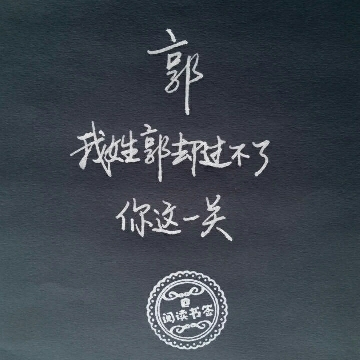 郭
我姓郭却过不了
你这一关
阅读书签